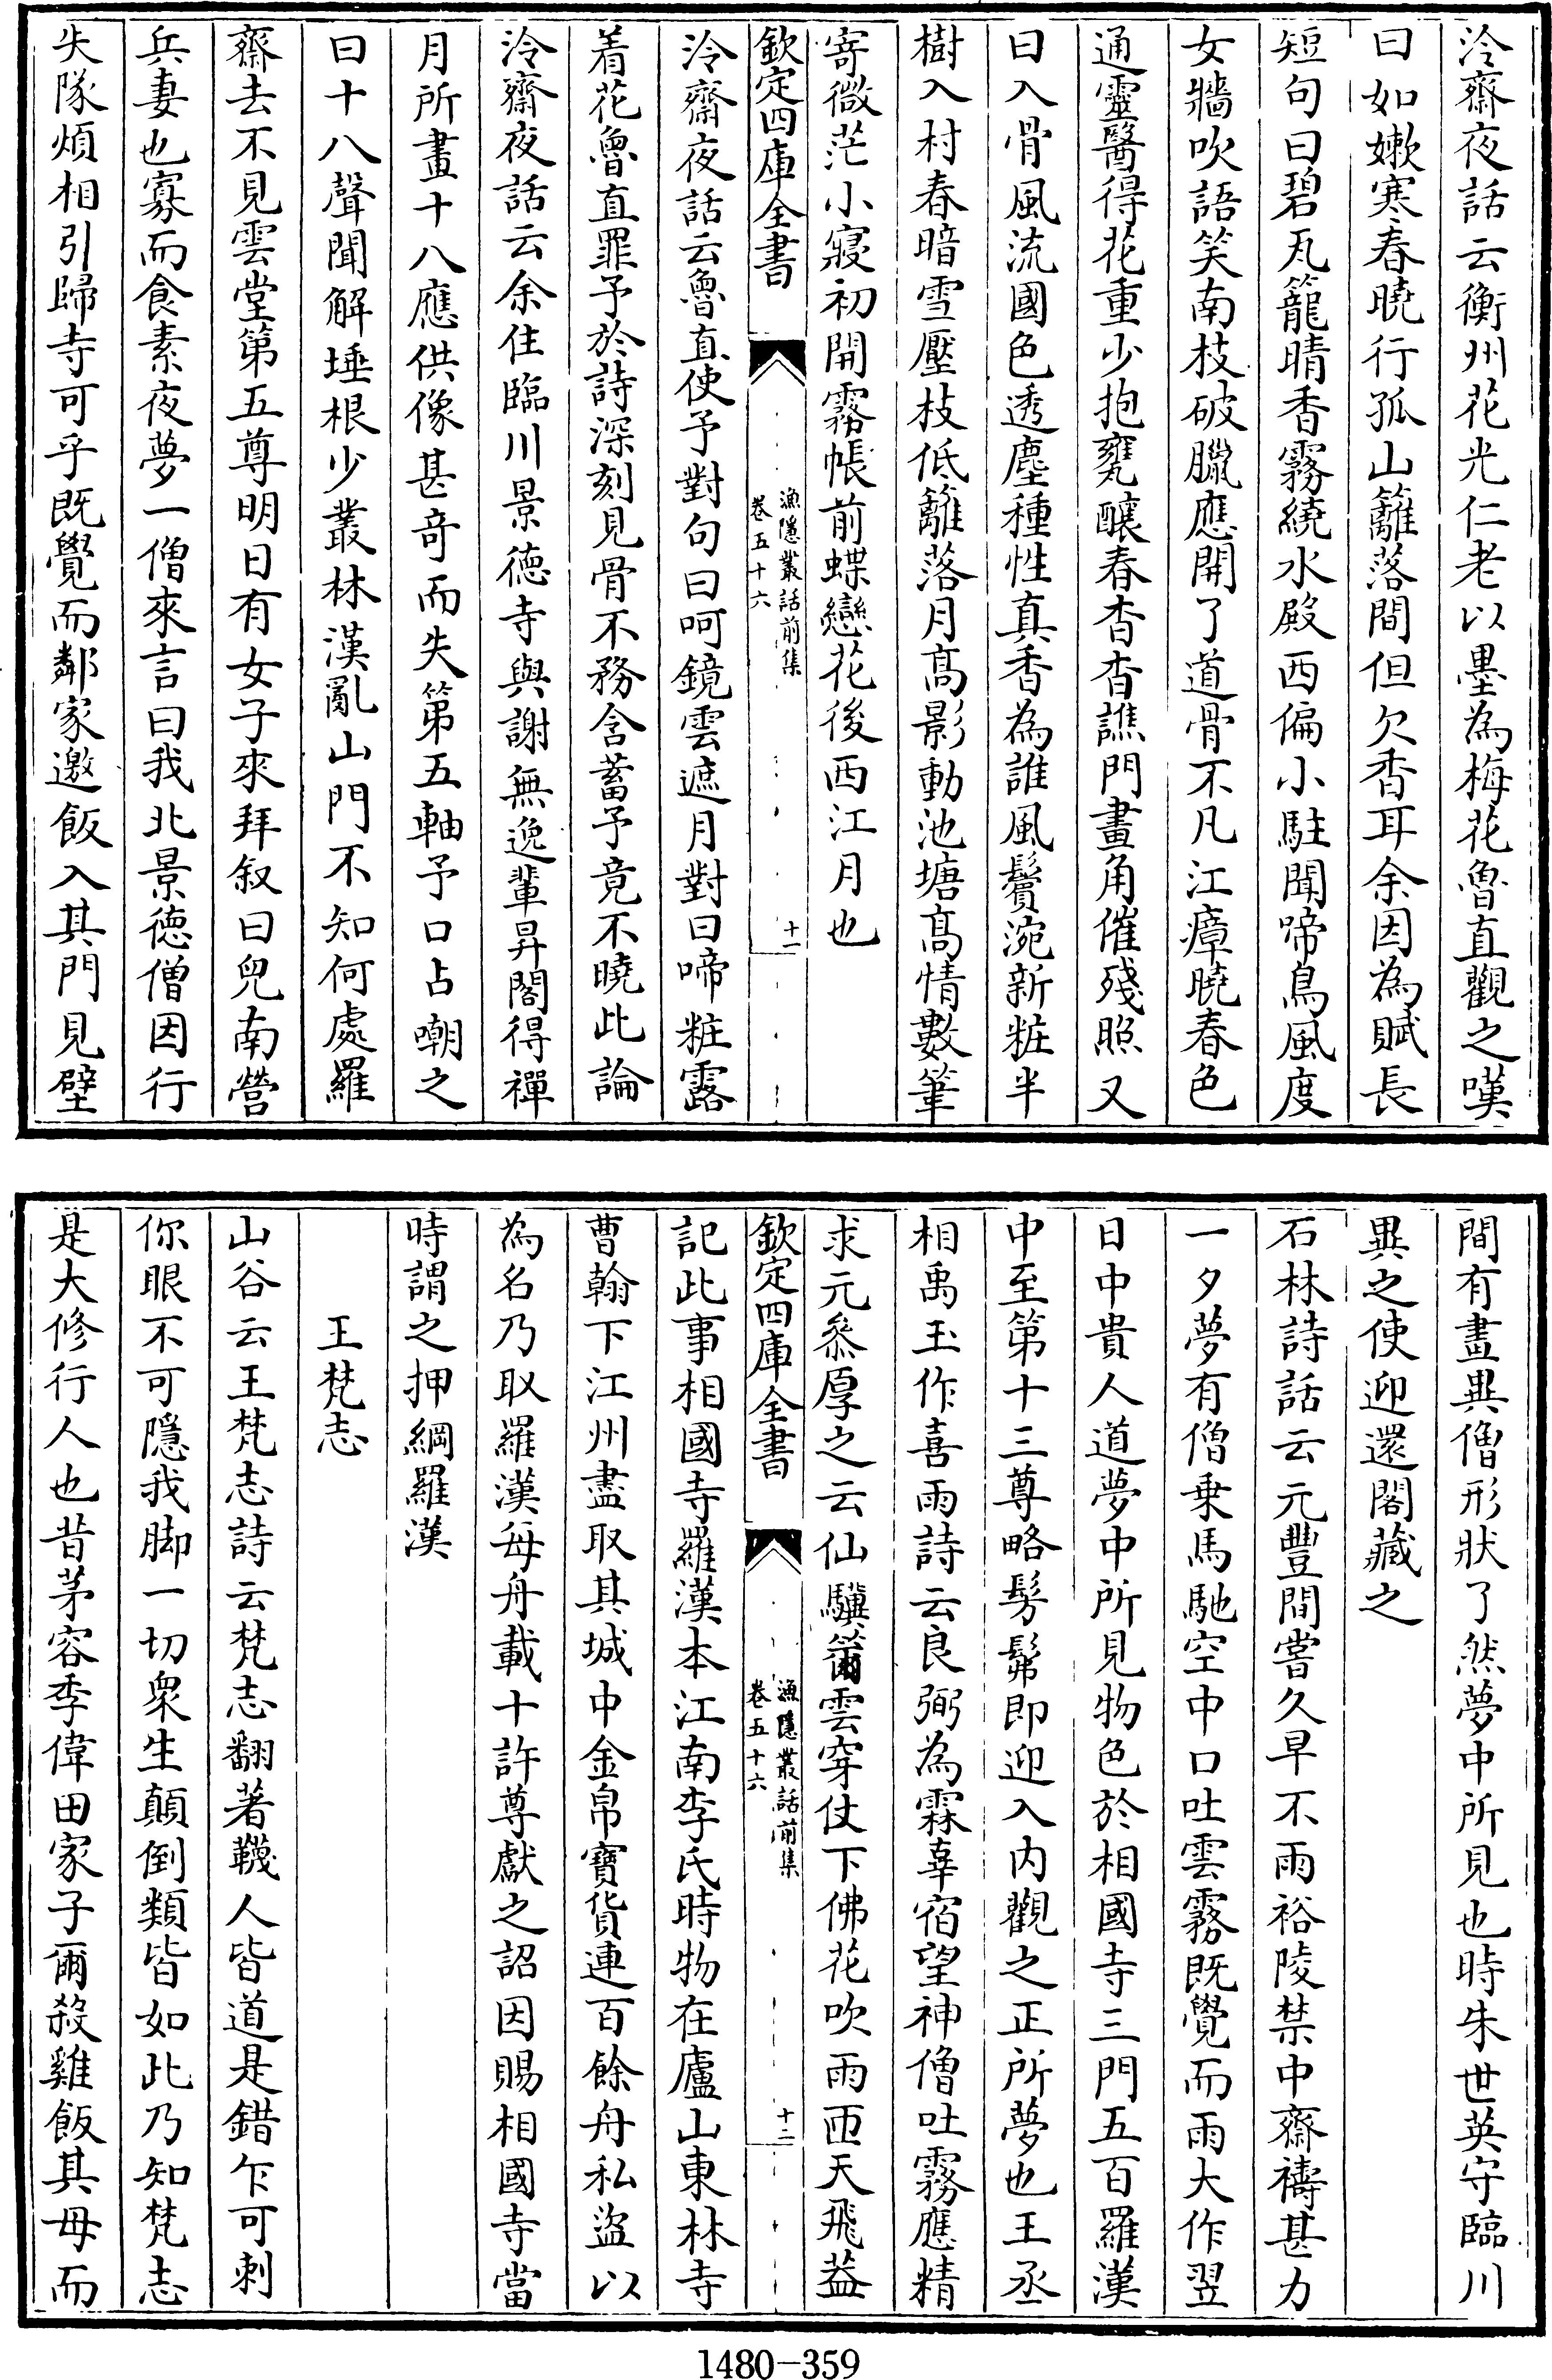 冷齋夜話云衡州花光仁老以墨為梅花魯直觀之嘆
曰如嫰寒春曉行孤山籬落間但欠香耳余因為賦長
短句曰碧瓦籠晴香霧繞水殿西偏小駐聞啼鳥風度
女牆吹語笑南枝破臘應開了道骨不凡江瘴曉春色
通靈醫得花重少抱甕釀春杳杳譙門畫角催殘照又
曰入骨風流國色透塵種性真香為誰風鬢涴新粧半
樹入村春暗雪壓枝低籬落月髙影動池塘髙情數筆
寄微茫小寢初開霧帳前蝶戀花後西江月也
欽定四庫全書
漁隱叢話前集
卷五十六
十一
泠齋夜話云魯直使予對句曰呵鏡雲遮月對曰啼粧露
着花魯直罪予於詩深刻見骨不務含蓄予竟不曉此論
泠齋夜話云余住臨川景徳寺與謝無逸輩昇閣得禪
月所畫十八應供像甚竒而失第五軸予口占嘲之
曰十八聲聞解埵根少叢林漢亂山門不知何處羅
齋去不見雲堂第五尊明日有女子來拜叙曰兒南營
兵妻也寡而食素夜夢一僧來言曰我北景徳僧因行
失隊煩相引歸寺可乎既覺而鄰家邀飯入其門見壁
間有畫異僧形狀了然夢中所見也時朱世英守臨川
異之使迎還閣藏之
石林詩話云元豐間嘗久旱不雨裕陵禁中齋禱甚力
一夕夢有僧乗馬馳空中口吐雲霧既覺而雨大作翌
日中貴人道夢中所見物色於相國寺三門五百羅漢
中至第十三尊略髣髴即迎入内觀之正所夢也王丞
相禹玉作喜雨詩云良弼為霖辜宿望神僧吐霧應精
求元叅厚之云仙驥籋雲穿仗下佛花吹雨匝天飛葢
欽定四庫全書
漁隱叢話前集
卷五十六
十二
記此事相國寺羅漢本江南李氏時物在廬山東林寺
曹翰下江州盡取其城中金帛寶貨連百餘舟私盜以
為名乃取羅漢每舟載十許尊獻之詔因賜相國寺當
時謂之押綱羅漢
王梵志
山谷云王梵志詩云梵志翻著韈人皆道是錯乍可刺
你眼不可隱我脚一切衆生顛倒類皆如此乃知梵志
是大修行人也昔茅容季偉田家子爾殺雞飯其母而
1480-359